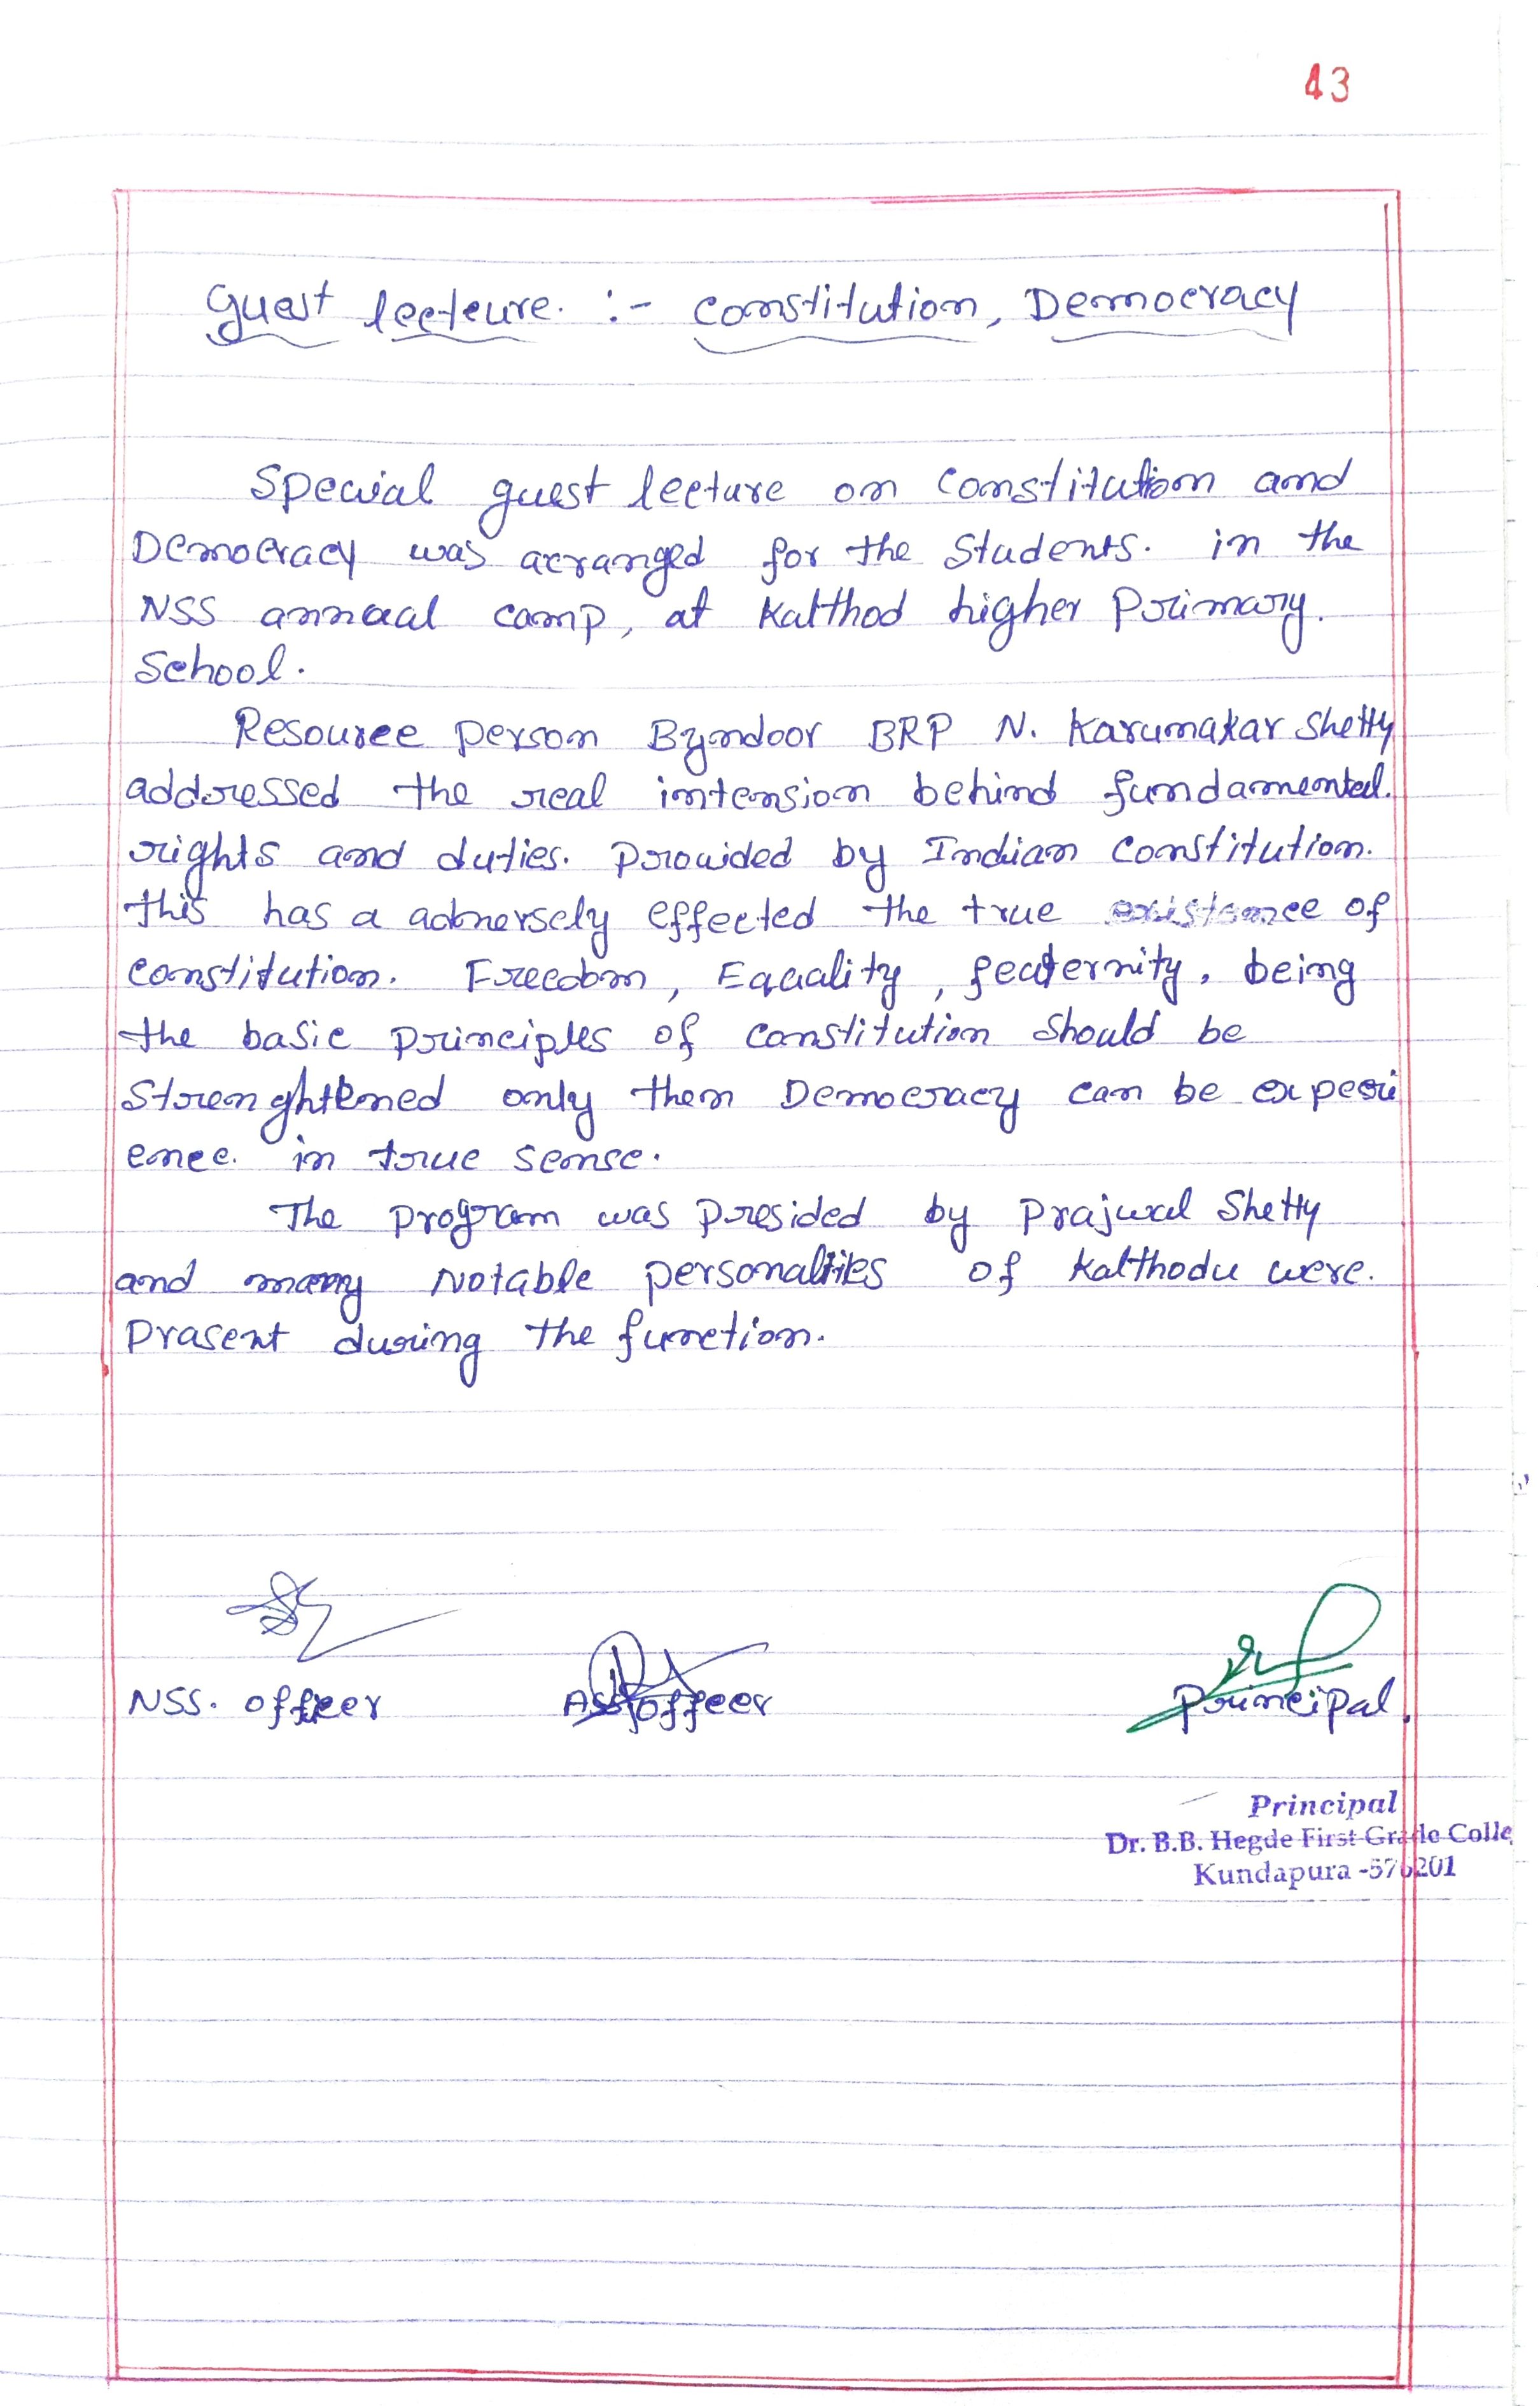 43
Guest lecteure. :- constitution, Democracy
Special guest lecture on Constitution and
Democracy was arranged for the Students. in the
NSS annual camp, at Kalthod higher Primary.
School.
Resource person Byndoor BRP N. Karunakar Shetty
addressed the real intension behind fundamental.
rights and duties. Provided by Indian Constitution.
this has a adversely effected the true existance of
constitution. Freedom, Equality, featernity, being
the basic principles of constitution should be
Strenghtened only then Democracy can be experi
ence. in true sense.
The program was presided by Prajwal Shetty
and many Notable personalities of Kalthodu were.
Prasent during the function.
NSS. officer Ass officer Principal.
Principal
Dr. B.B. Hegde First Grade Colle
Kundapura -576201